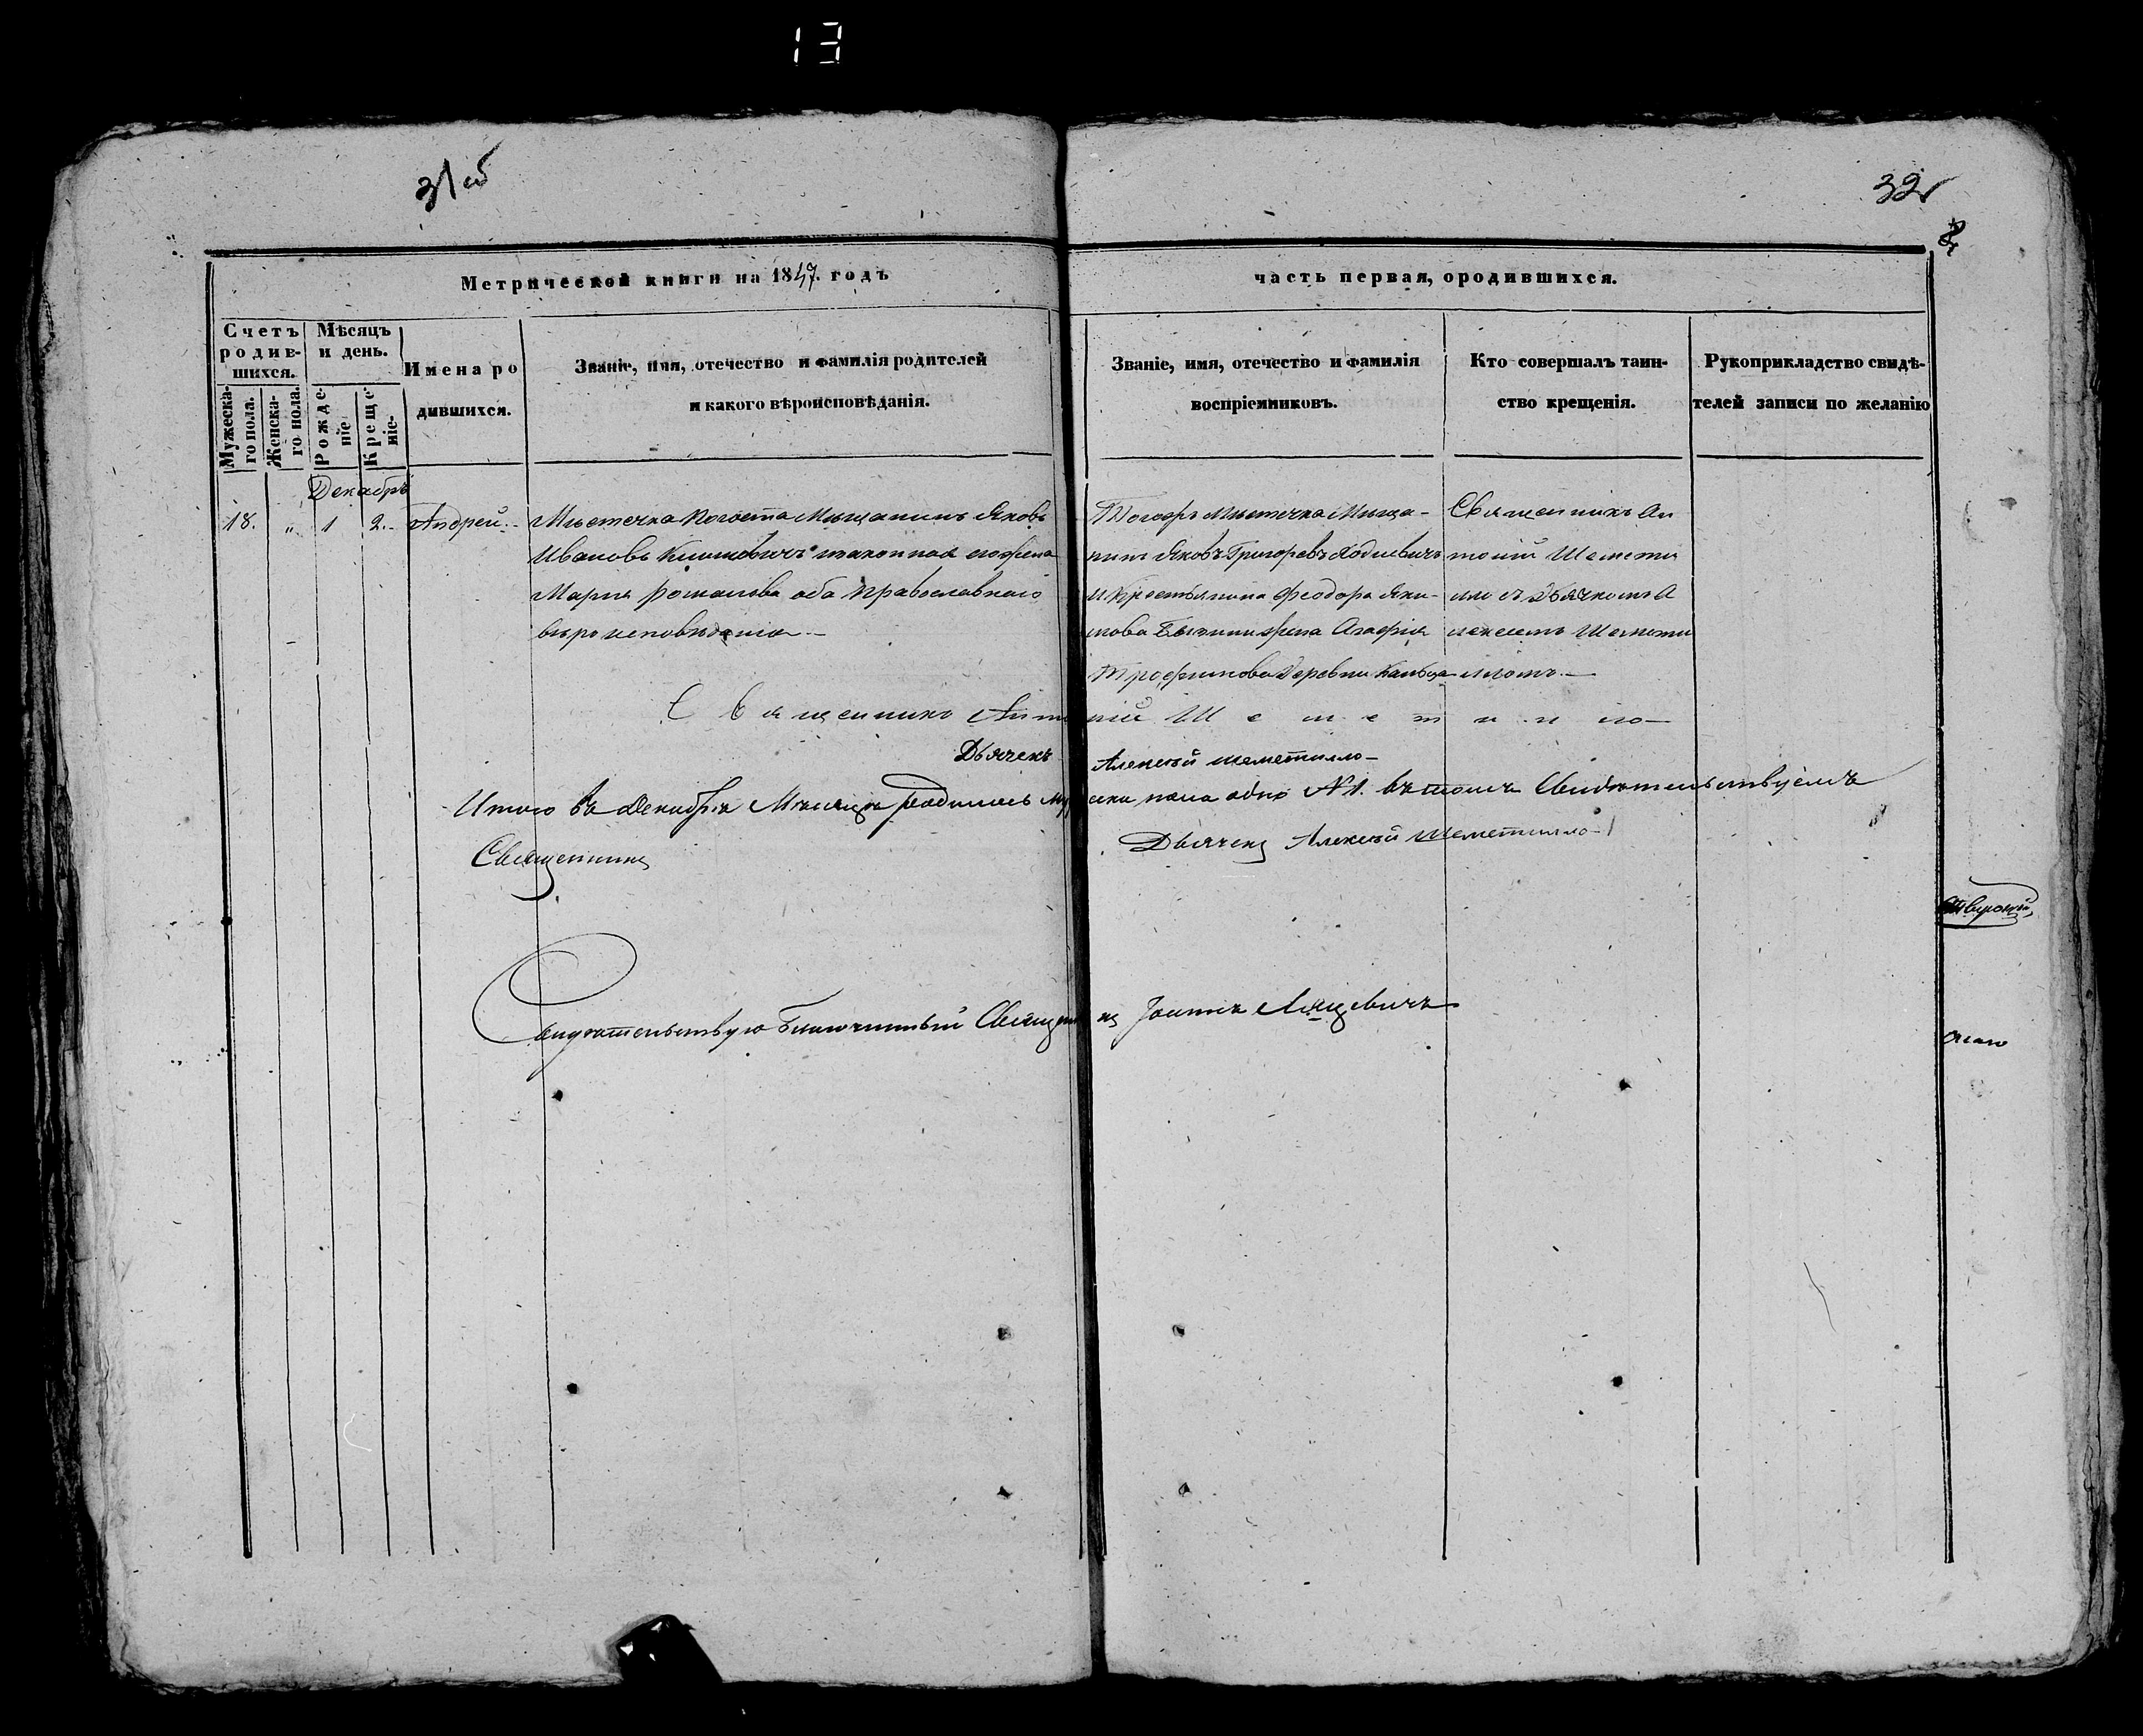 13
31об
32
Метрической книги на 1847. годъ
часть первая, ородившихся.
Счетъ родив-шихся.
Мѣсяцъ и день.
Имена родившихся.
Званіе, имя, отечество и фамилія родителей
и какого вѣроисповѣданія.
Званіе, имя, отечество и фамилія
воспріемниковъ.
Кто совершалъ таин-
ство крещенія.
Рукоприкладство свидѣ-
телей записи по желанію
Мужеска-го пола.
Женска-го пола.
Рожде-ніе.
Креще-ніе.
Декабрь
18. " 1 2. Андрей.
Мѣстечка Погоста Мѣщанинъ Яковъ
Ивановъ законная его жена
Марія Романова оба православнаго
вѣроисповѣданія
Тогожъ мѣстечка Мѣща-
нинъ Яковъ Григоревъ
и Крестьянина Феодора Яки-
мова жена Агафія
Трофимова Деревни
Священникъ Ан
тоній Шемети
ло съ Дьячкомъ А
лексеемъ Шемети
ломъ.
Священникъ Антоній Шеметилло
Дьячекъ Алексѣй Шеметилло
Итого въ Декабрѣ Мѣсяцѣ родилось муж ска пола одно №1. въ томъ Свидѣтельствуемъ
Священникъ
Дьячекъ Алексѣй Шеметилло
Свидѣтельствую Благочинный Священникъ Іоаннъ Лящевичъ